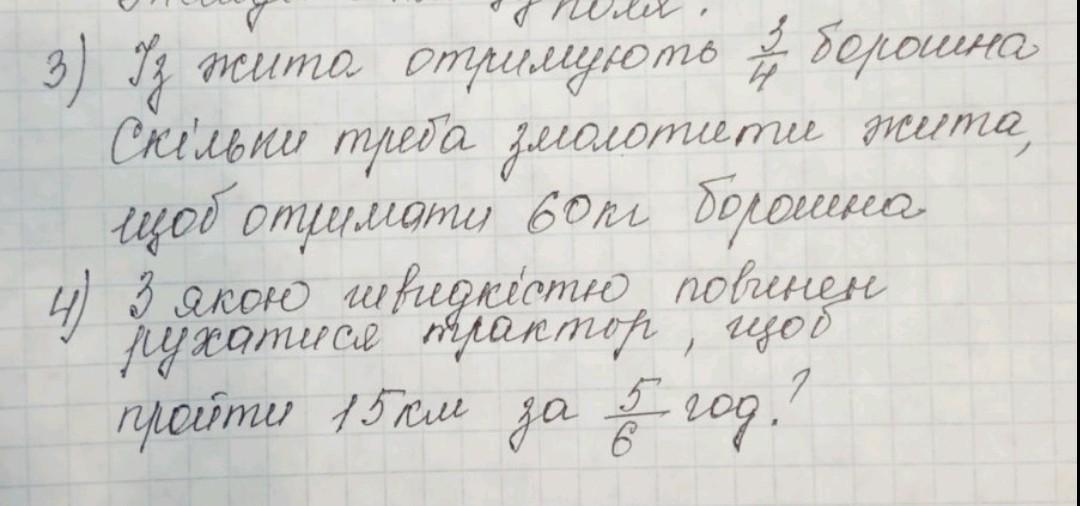 поля.
3) Із жита отримують 3/4 борошна
Скільки треба змолотити жита,
щоб отримати 60кг борошна
4) З якою швидкістю повинен
рухатися трактор, щоб
пройти 15км за 5/6 год.?